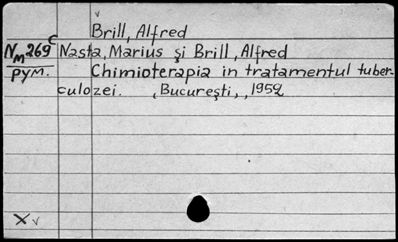 Brill, Alfred
Nm269c Nasta, Marius și Brill, Alfred
рум. Chimioterapia in tratamentul tuber-
culozei. , București, , 1952
X v